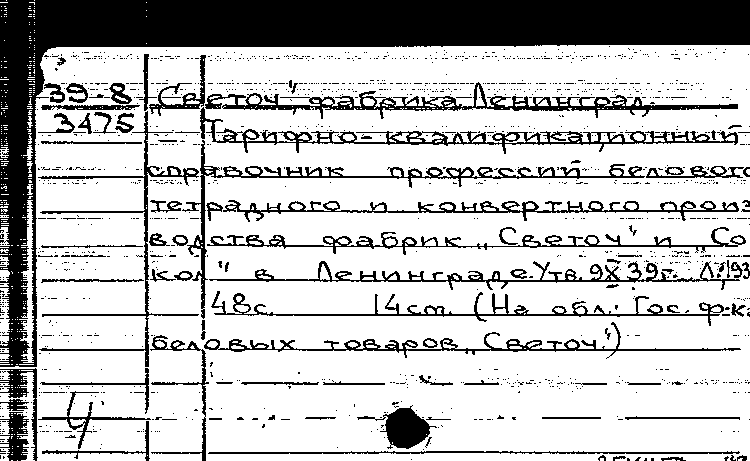 39-8 „Светоч", фабрика Ленинград.
3475 Тарифно-квалификационный
справочник профессий белового
тетрадного и конвертного произ
водства фабрик „Светоч" и „Со
кол" в Ленинграде. Утв. 9 X 39г. Л., 193
48с. 14см. (На обл.: Гос. ф-ка
беловых товаров „Светоч")